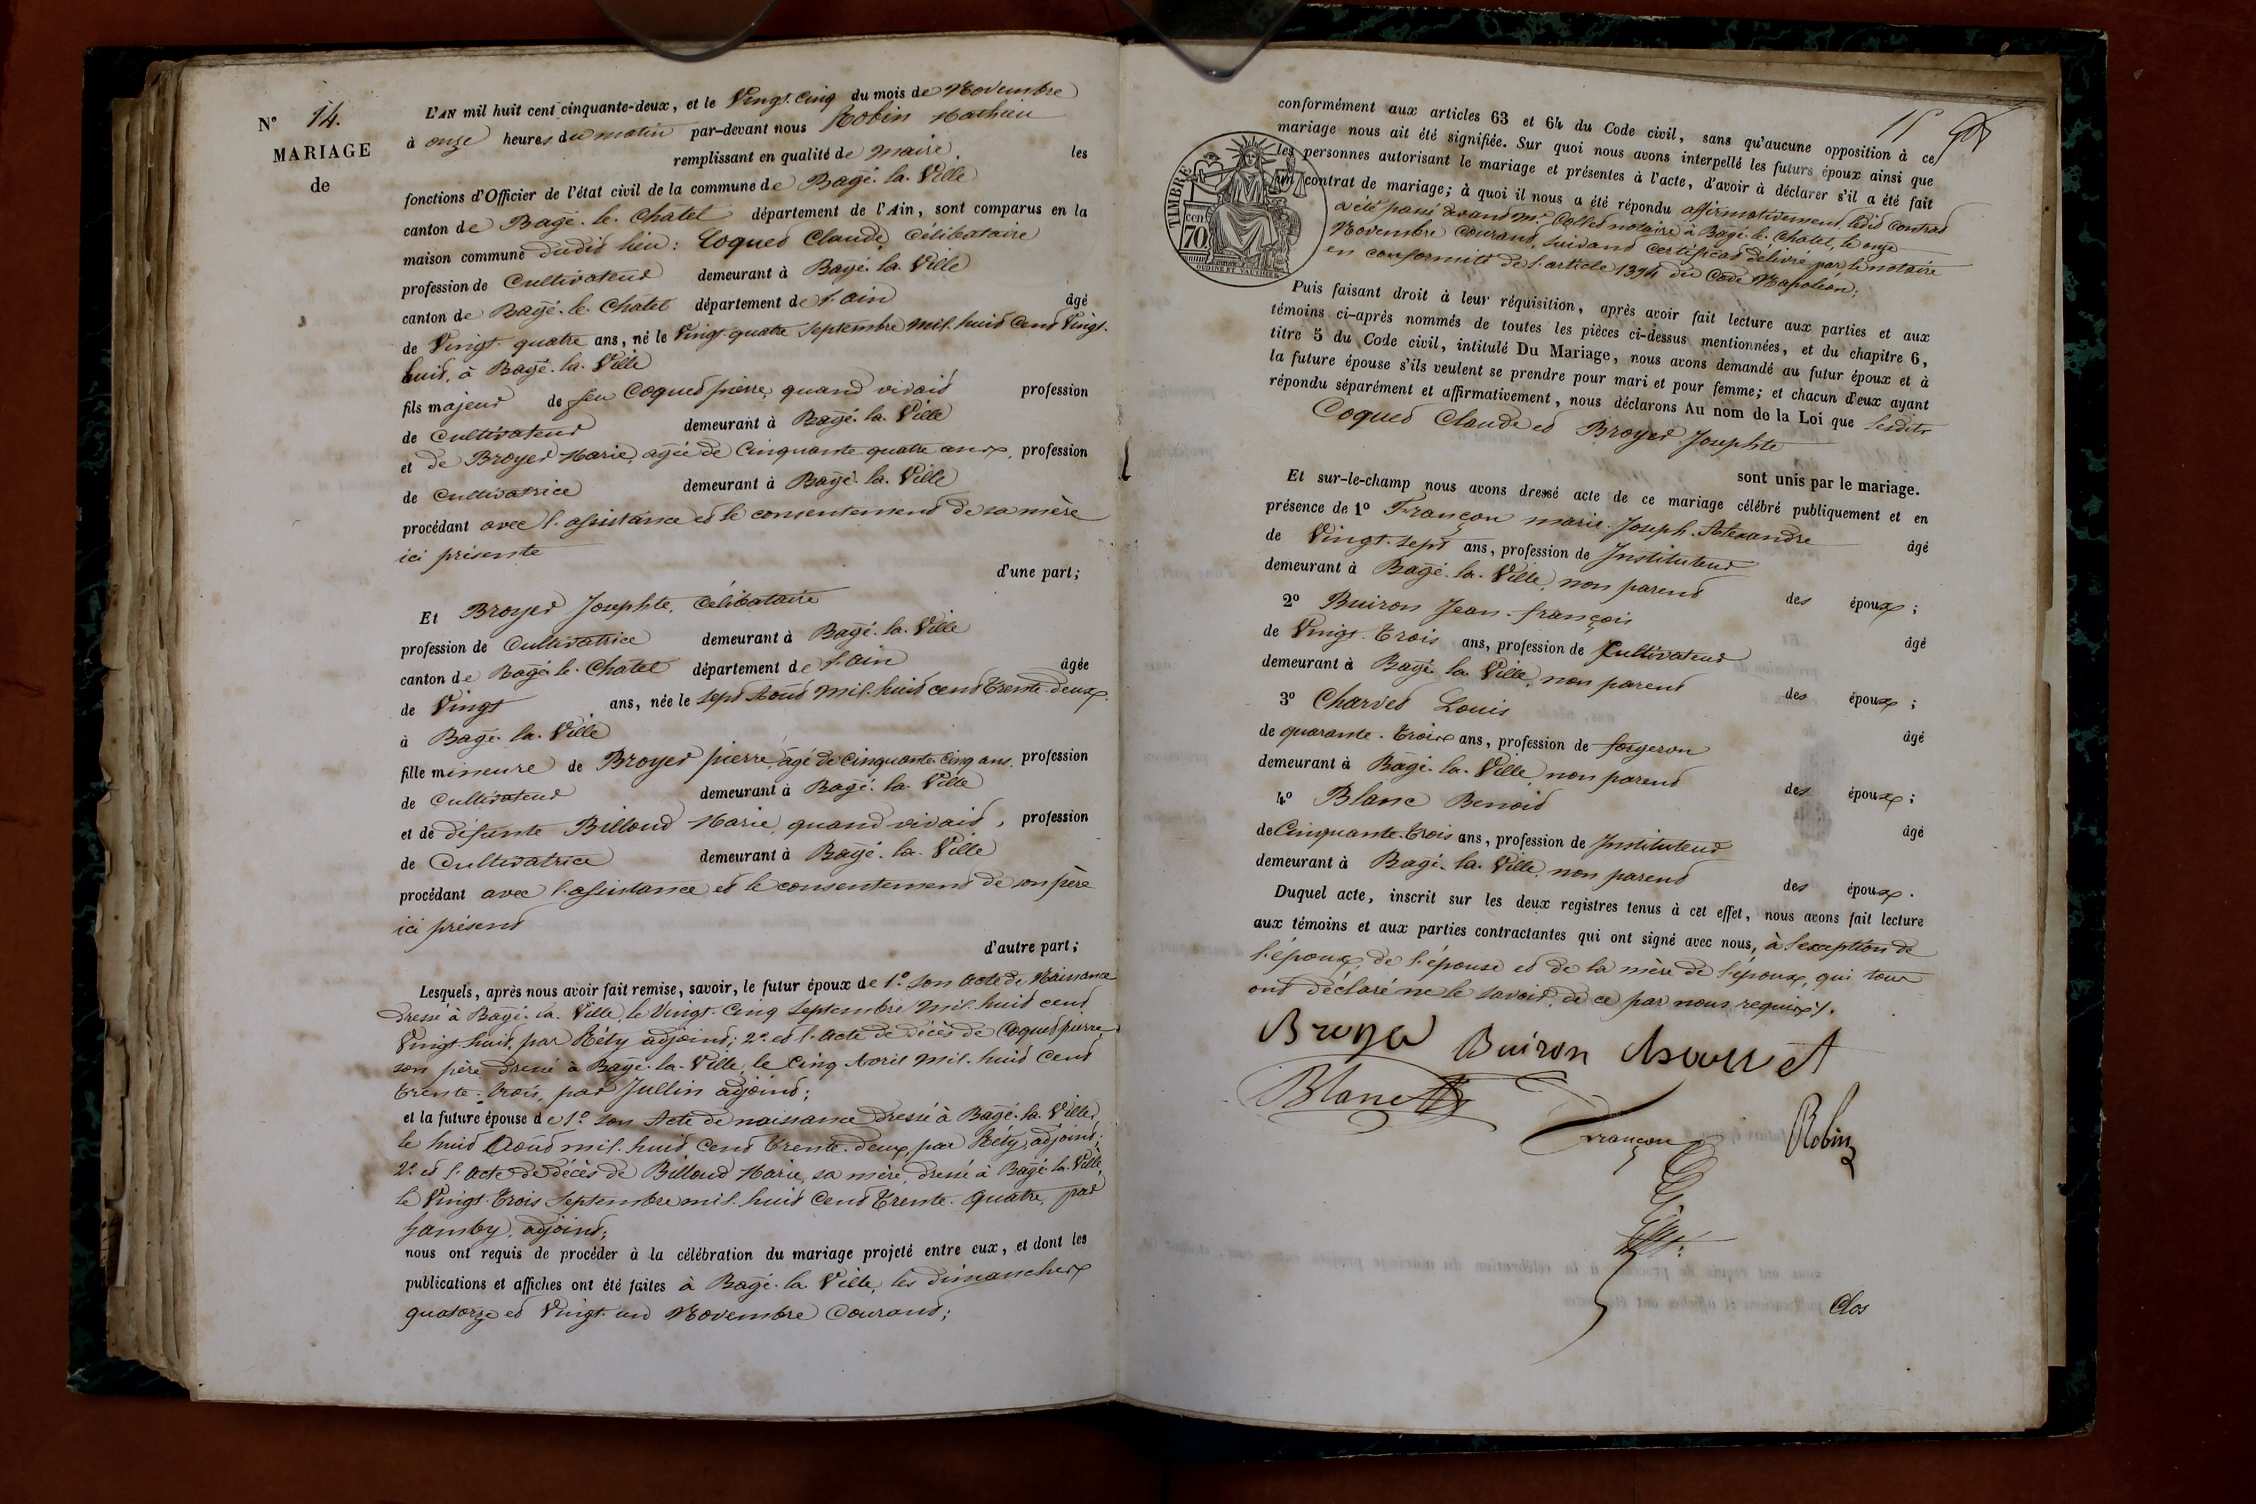 N° 14.
MARIAGE
de
L'AN mil huit cent cinquante-deux, et le Vingt. Cinq du mois de Novembre
à onze heures du matin par-devant nous Robin Mathieu
remplissant en qualité de maire les
fonctions d'Officier de l'état civil de la commune de Bagé. la. Ville
canton de Bagé. le. Chatel département de l'Ain, sont comparus en la
maison commune dudit lieu: Coquet Claude, Célibataire
profession de Cultivateur demeurant à Bagé. la. Ville
canton de Bagé. le. Chatel département de l'ain âgé
de Vingt. quatre ans, né le Vingt. quatre Septembre mil. huit Cent Vingt.
huit, à Bagé. la. Ville
fils majeur de feu Coquet pierre, quand vivait profession
de Cultivateur demeurant à Bagé. la. Ville
et de Broyer Marie, agée de Cinquante quatre ans, profession
de Cultivatrice demeurant à Bagé. la. Ville
procédant avec l'assistance et le consentement de sa mère
ici présente
d'une part;
Et Broyer Josephte, Célibataire
profession de Cultivatrice demeurant à Bagé. la. Ville
canton de Bagé. le. Chatel département de l'ain âgée
de Vingt ans, née le sept Aout Mil. huit cent trente. deux,
à Bagé. la. Ville
fille mineure de Broyer pierre, âgé de Cinquante. Cinq ans, profession
de Cultivateur demeurant à Bagé. la. Ville
et de défunte Billoud Marie, quand vivait, profession
de Cultivatrice demeurant à Bagé. la. Ville
procédant avec l'assistance et le consentement de son père
ici présent
d'autre part;
Lesquels, après nous avoir fait remise, savoir, le futur époux de 1°. son acte de Naissance
dressé à Bagé. la. Ville, le Vingt. Cinq Septembre Mil. huit cent
Vingt. huit, par Réty adjoint; 2°. et l'acte de décès de Coquet pierre,
son père dressé à Bagé. la. Ville, le Cinq Avril Mil. huit Cent
trente. trois, par Jullin adjoint;
et la future épouse de 1°. son Acte de naissance dressé à Bagé. la. Ville,
le huit Aout mil. huit Cent trente. deux, par Réty, adjoint;
2°. et l'acte de décès de Billoud Marie, sa mère, dressé à Bagé. la. Ville,
le Vingt. trois Septembre mil. huit Cent trente. quatre, par
Jamby, adjoint;
nous ont requis de procéder à la célébration du mariage projeté entre eux, et dont les
publications et affiches ont été faites à Bagé. la. Ville, les dimanches
quatorze et Vingt. un Novembre Courant;
15
TIMBRE
cen
70
conformément aux articles 63 et 64 du Code civil, sans qu'aucune opposition à ce
mariage nous ait été signifiée. Sur quoi nous avons interpellé les futurs époux ainsi que
les personnes autorisant le mariage et présentes à l'acte, d'avoir à déclarer s'il a été fait
un contrat de mariage; à quoi il nous a été répondu affirmativement, ledit contrat
a été passé devant Me. Collet notaire à Bagé. le. Chatel, le onze
Novembre Courant, suivant certificat délivré par le notaire
en conformité de l'article 1394 du Code Napoléon;
Puis faisant droit à leur réquisition, après avoir fait lecture aux parties et aux
témoins ci-après nommés de toutes les pièces ci-dessus mentionnées, et du chapitre 6,
titre 5 du Code civil, intitulé Du Mariage, nous avons demandé au futur époux et à
la future épouse s'ils veulent se prendre pour mari et pour femme; et chacun d'eux ayant
répondu séparément et affirmativement, nous déclarons Au nom de la Loi que lesdits
Coquet Claude et Broyer Josephte
sont unis par le mariage.
Et sur-le-champ nous avons dressé acte de ce mariage célébré publiquement et en
présence de 1° Françon marie. Joseph. Alexandre âgé
de Vingt. sept ans, profession de Instituteur
demeurant à Bagé. la. Ville, non parent des époux;
2° Buiron Jean. françois âgé
de Vingt. trois ans, profession de Cultivateur
demeurant à Bagé. la. Ville, non parent des époux;
3° Charvet Louis âgé
de quarante. trois ans, profession de forgeron
demeurant à Bagé. la. Ville, non parent des époux;
4° Blanc Benoit âgé
de Cinquante. trois ans, profession de Instituteur
demeurant à Bagé. la. Ville, non parent des époux.
Duquel acte, inscrit sur les deux registres tenus à cet effet, nous avons fait lecture
aux témoins et aux parties contractantes qui ont signé avec nous, à l'exception de
l'époux, de l'épouse et de la mère de l'époux, qui tous
ont déclaré ne le savoir, de ce par nous requis.
Broyer Buiron Charvet
Blanc
françon Robin
Clos